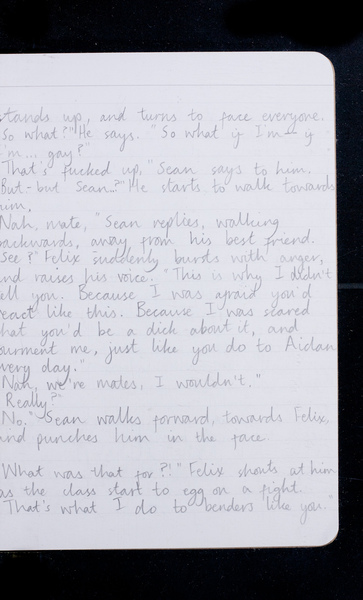 tands up, and turns to face everyone.
So what?" He says. "So what if I'm – if
'm... gay?"
That's fucked up," Sean says to him.
But - but Sean..?" He starts to walk towards
him.
Nah, mate," Sean replies, walking
backwards, away from his best friend.
See?" Felix suddenly bursts with anger,
and raises his voice. "This is why I didn't
tell you. Because I was afraid you'd
react like this. Because I was scared
that you'd be a dick about it, and
ourment me, just like you do to Aidan
very day."
Nah, we're mates, I wouldn't."
Really?"
No." Sean walks forward, towards Felix,
and punches him in the face.
"What was that for?!" Felix shouts at him
as the class start to egg on a fight.
"That's what I do to benders like you."